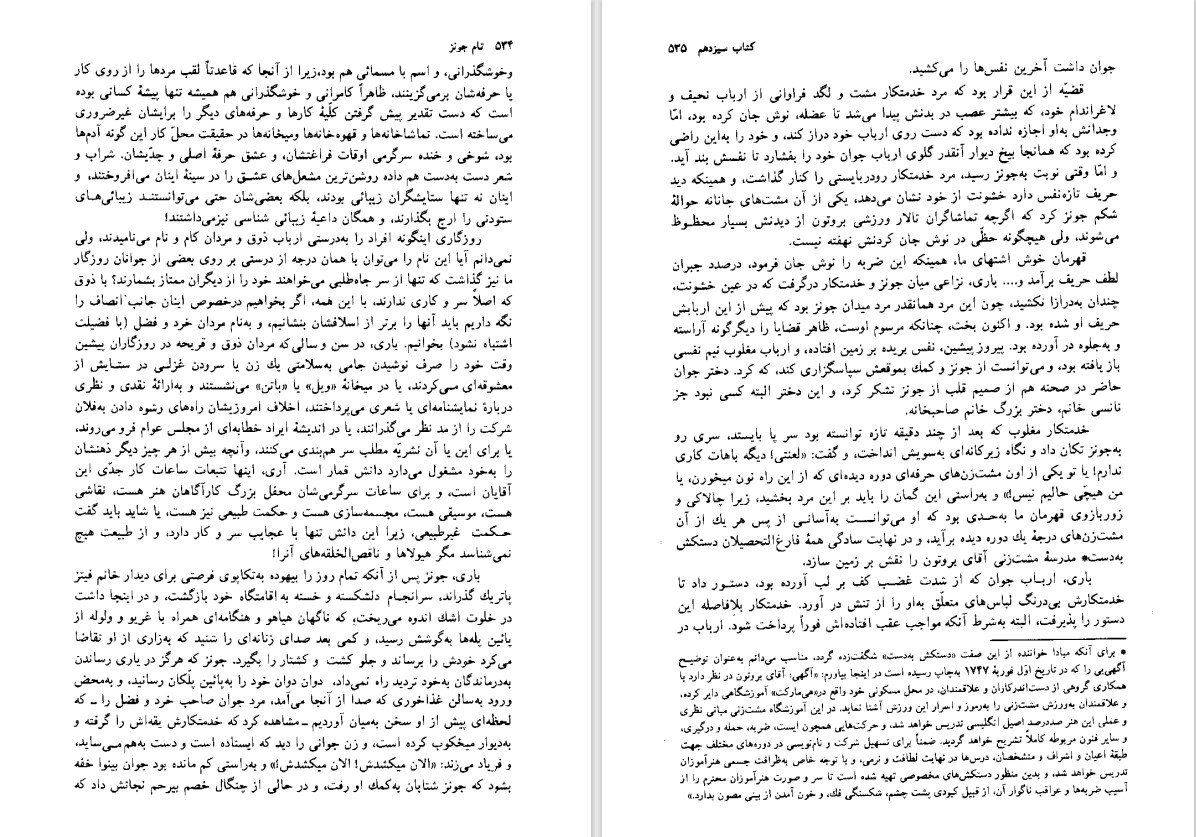 ۵۳۴ تام جونز
وخوشگذرانی، و اسم با مسمائی هم بود،زیرا از آنجا که قاعدتاً لقب مردها را از روی کار
یا حرفه‌شان برمی‌گزینند، ظاهراً کامرانی و خوشگذرانی هم همیشه تنها پیشهٔ کسانی بوده
است که دست تقدیر پیش گرفتن کلّیهٔ کارها و حرفه‌های دیگر را برایشان غیرضروری
می‌ساخته است. تماشاخانه‌ها و قهوه‌خانه‌ها ومیخانه‌ها در حقیقت محلّ کار این گونه آدم‌ها
بود، شوخی و خنده سرگرمی اوقات فراغتشان، و عشق حرفهٔ اصلی و جدّیشان. شراب و
شعر دست به‌دست هم داده روشن‌ترین مشعل‌های عشـق را در سینهٔ اینان می‌افروختند، و
اینان نه تنها ستایشگران زیبائی بودند، بلکه بعضی‌شان حتی می‌توانستنـد زیبائی‌هـای
ستودنی را ارج بگذارند، و همگان داعیهٔ زیبائی شناسی نیزمی‌داشتند!
روزگاری اینگونه افراد را به‌درستی ارباب ذوق و مردان کام و نام می‌نامیدند، ولی
نمی‌دانم آیا این نام را می‌توان با همان درجه از درستی بر روی بعضی از جوانان روزگار
ما نیز گذاشت که تنها از سر جاه‌طلبی می‌خواهند خود را از دیگران ممتاز بشمارند؟ با ذوق
که اصلاً سر و کاری ندارند، با این همه، اگر بخواهیم درخصوص اینان جانب انصاف را
نگه داریم باید آنها را برتر از اسلافشان بنشانیم، و به‌نام مردان خرد و فضل (با فضیلت
اشتباه نشود) بخوانیم. باری، در سن و سالی که مردان ذوق و قریحه در روزگاران پیشین
وقت خود را صرف نوشیدن جامی به‌سلامتی یك زن یا سرودن غزلـی در ستـایش از
معشوقه‌ای مـی‌کردند، یا در میخانهٔ «ویل» یا «باتن» می‌نشستند و به‌ارائهٔ نقدی و نظری
دربارهٔ نمایشنامه‌ای یا شعری می‌پرداختند، اخلاف امروزیشان راه‌های رشوه دادن به‌فلان
شرکت را از مد نظر می‌گذرانند، یا در اندیشهٔ ایراد خطابه‌ای از مجلس عوام فرو می‌روند،
یا برای این یا آن نشریّه مطلب سر هم‌بندی می‌کنند، وآنچه بیش از هر چیز دیگر ذهنشان
را به‌خود مشغول می‌دارد دانش قمار است. آری، اینها تتبعات ساعات کار جدّی این
آقایان است، و برای ساعات سرگرمی‌شان محفل بزرگ کارآگاهان هنر هست، نقاشی
هست، موسیقی هست، مجسمه‌سازی هست و حکمت طبیعی نیز هست، یا شاید باید گفت
حکـمت غیرطبیعی، زیرا این دانش تنها با عجایب سر و کار دارد، و از طبیعت هیچ
نمی‌شناسد مگر هیولاها و ناقص‌الخلقه‌های آنرا!
باری، جونز پس از آنکه تمام روز را بیهوده به‌تکاپوی فرصتی برای دیدار خانم فیتز
پاتریك گذراند، سرانجـام دلشکسته و خسته به‌اقامتگاه خود بازگشت، و در اینجا داشت
در خلوت اشك اندوه می‌ریخت، که ناگهان هیاهو و هنگامه‌ای همراه با غریو و ولوله از
پائین پله‌ها به‌گوشش رسید، و کمی بعد صدای زنانه‌ای را شنید که به‌زاری از او تقاضا
می‌کرد خودش را برساند و جلو کشت و کشتار را بگیرد. جونز که هرگز در یاری رساندن
به‌درماندگان به‌خود تردید راه نمی‌داد، دوان دوان خود را به‌پائین پلّکان رسانید، و به‌محض
ورود به‌سالن غذاخوری که صدا از آنجا می‌آمد، مرد جوان صاحب خرد و فضل را ــ که
لحظه‌ای پیش از او سخن به‌میان آوردیم ــ مشاهده کرد که خدمتکارش یقه‌اش را گرفته و
به‌دیوار میخکوب کرده است، و زن جوانی را دید که ایستاده است و دست به‌هم مـی‌ساید،
و فریاد می‌زند: «الان میکشدش! الان میکشدش!» و به‌راستی کم مانده بود جوان بینوا خفه
بشود که جونز شتابان به‌کمك او رفت، و در حالی از چنگال خصم بیرحم نجاتش داد که
کتاب سیزدهم ۵۳۵
جوان داشت آخرین نفس‌ها را می‌کشید.
قضیّه از این قرار بود که مرد خدمتکار مشت و لگد فراوانی از ارباب نحیف و
لاغراندام خود، که بیشتر عصب در بدنش پیدا می‌شد تا عضله، نوش جان کرده بود، امّا
وجدانش به‌او اجازه نداده بود که دست روی ارباب خود دراز کند، و خود را به‌این راضی
کرده بود که همانجا بیخ دیوار آنقدر گلوی ارباب جوان خود را بفشارد تا نفسش بند آید.
و امّا وقتی نوبت به‌جونز رسید، مرد خدمتکار رودربایستی را کنار گذاشت، و همینکه دید
حریف تازه‌نفس دارد خشونت از خود نشان می‌دهد، یکی از آن مشت‌های جانانه حوالهٔ
شکم جونز کرد که اگرچه تماشاگران تالار ورزشی بروتون از دیدنش بسیار محظـوظ
می‌شوند، ولی هیچگونه حظّی در نوش جان کردنش نهفته نیست.
قهرمان خوش اشتهای ما، همینکه این ضربه را نوش جان فرمود، درصدد جبران
لطف حریف برآمد و.... باری، نزاعی میان جونز و خدمتکار درگرفت که در عین خشونت،
چندان به‌درازا نکشید، چون این مرد همانقدر مرد میدان جونز بود که پیش از این اربابش
حریف او شده بود. و اکنون بخت، چنانکه مرسوم اوست، ظاهر قضایا را دیگرگونه آراسته
و به‌جلوه در آورده بود. پیروز پیشین، نفس بریده بر زمین افتاده، و ارباب مغلوب نیم نفسی
باز یافته بود، و می‌توانست از جونز و کمك بموقعش سپاسگزاری کند، که کرد. دختر جوان
حاضر در صحنه هم از صمیم قلب از جونز تشکر کرد، و این دختر البته کسی نبود جز
نانسی خانم، دختر بزرگ خانم صاحبخانه.
خدمتکار مغلوب که بعد از چند دقیقه تازه توانسته بود سر پا بایستد، سری رو
به‌جونز تکان داد و نگاه زیرکانه‌ای به‌سویش انداخت، و گفت: «لعنتی! دیگه باهات کاری
ندارم! یا تو یکی از اون مشت‌زن‌های حرفه‌ای دوره دیده‌ای که از این راه نون میخورن، یا
من هیچّی حالیم نیس!» و به‌راستی این گمان را باید بر این مرد بخشید، زیرا چالاکی و
زوربازوی قهرمان ما به‌حـدی بود که او می‌توانسـت به‌آسانـی از پس هر یك از آن
مشت‌زن‌های درجهٔ یك دوره دیده برآید، و در نهایت سادگی همهٔ فارغ‌التحصیلان دستکش
به‌دست* مدرسهٔ مشت‌زنی آقای بروتون را نقش بر زمین سازد.
باری، اربـاب جوان که از شدت غضب کف بر لب آورده بود، دستـور داد تا
خدمتکارش بی‌درنگ لباس‌های متعلّق به‌او را از تنش در آورد. خدمتکار بلافاصله این
دستور را پذیرفت، البته به‌شرط آنکه مواجب عقب افتاده‌اش فوراً پرداخت شود. ارباب در
* برای آنکه مبادا خواننده از این صفت «دستکش به‌دست» شگفت‌زده گردد، مناسب می‌دانم به‌عنوان توضیـح
آگهی‌یی را که در تاریخ اوّل فوریهٔ ۱۷۴۷ به‌چاپ رسیده است در اینجا بیاورم: «آگهی: آقای بروتون در نظر دارد با
همکاری گروهی از دست‌اندرکاران و علاقمندان، در محل مسکونی خود واقع در«هی‌مارکت» آموزشگاهی دایر کرده،
و علاقمندان به‌ورزش مشت‌زنی را به‌رموز و اسرار این ورزش آشنا نماید. در این آموزشگاه مشت‌زنی مبانی نظری
و عملی این هنر صددرصد اصیل انگلیسی تدریس خواهد شد، و حرکت‌هایی همچون ایست، ضربه، حمله و درگیری،
و سایر فنون مربوطه کاملاً تشریح خواهد گردید. ضمناً برای تسهیل شرکت و نام‌نویسی در دوره‌های مختلف جهت
طبقهٔ اعیان و اشراف و متشخصان، درس‌ها در نهایت لطافت و نرمی، و با توجه خاص به‌ظرافت جسمی هنرآموزان
تدریس خواهد شد، و بدین منظور دستکش‌های مخصوصی تهیه شده است تا سر و صورت هنرآموزان محترم را از
آسیب ضربه‌ها و عواقب ناگوار آن، از قبیل کبودی پشت چشم، شکستگی فك، و خون آمدن از بینی مصون بدارد.»